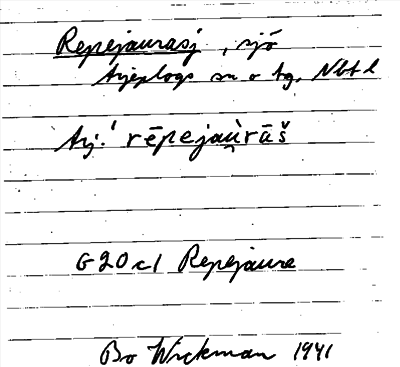 Repejaurasj, sjö
Arjeplogs sn o tg, Nbt l
Arj.! rēpejaùrāš
G20 c1 Repejaure
Bo Wickman 1941